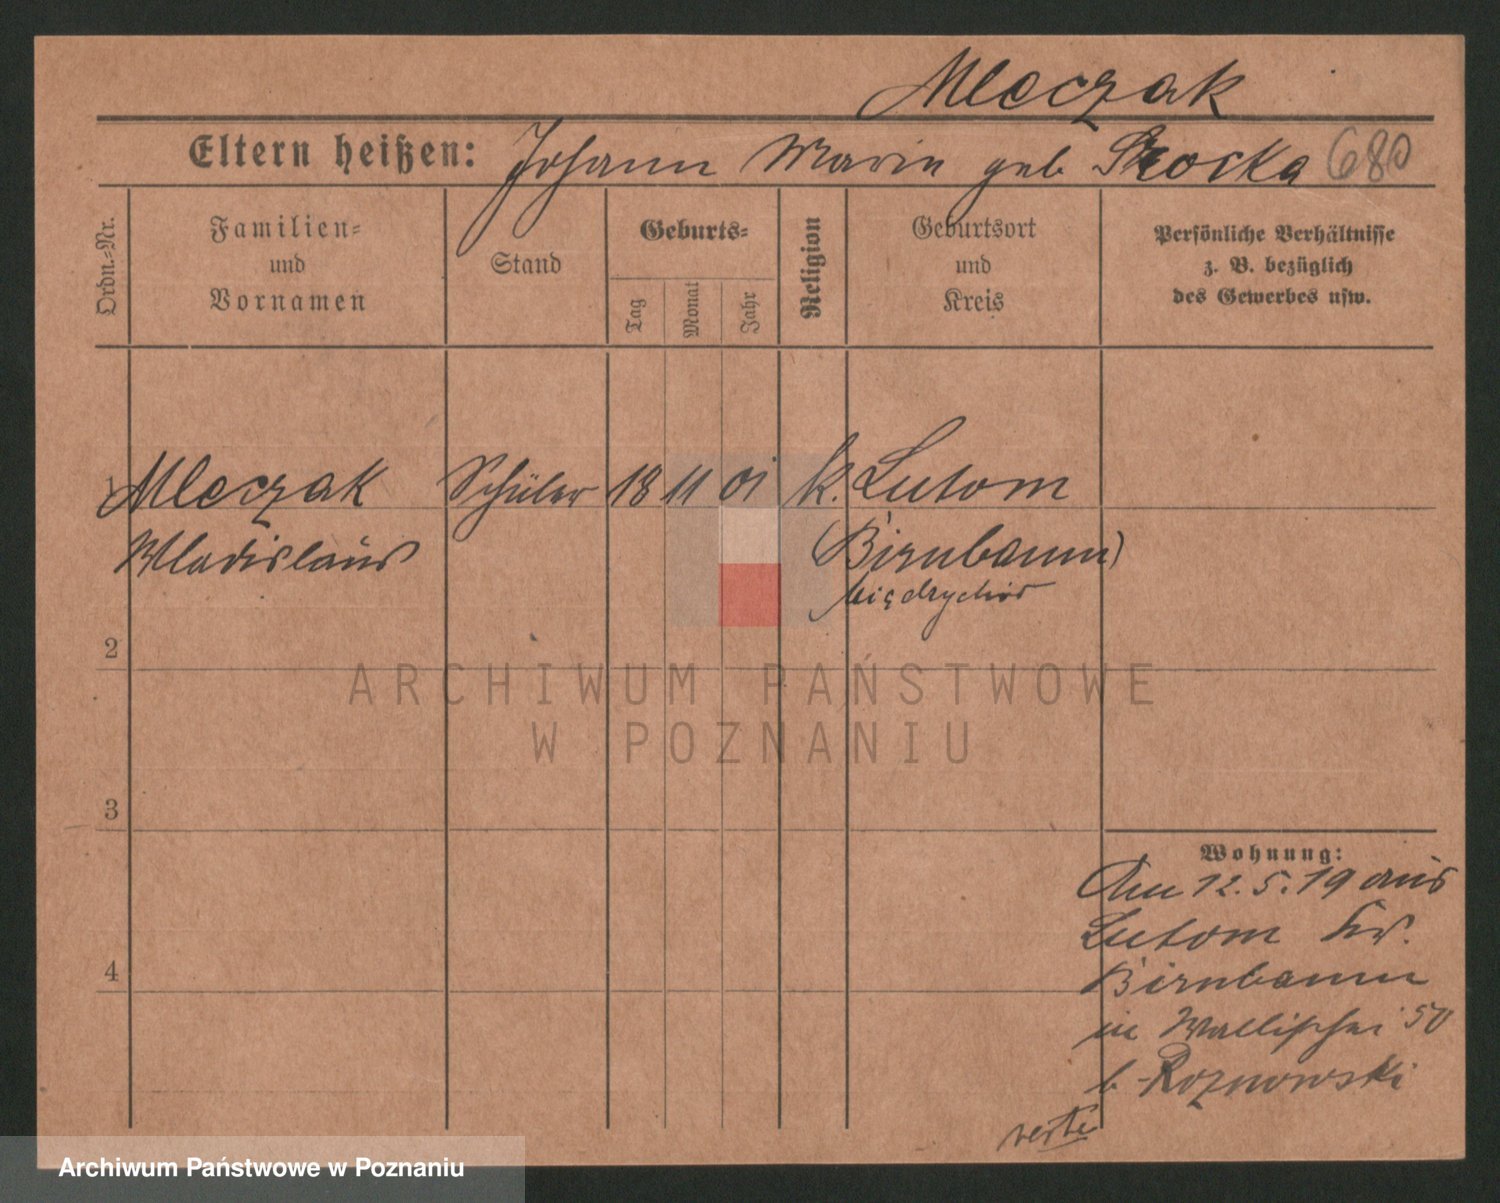 Mleczak
Eltern heißen: Johann Maria geb 680
Ordn.-Nr.
Familien-
und
Vornamen
Stand
Geburts-
Tag
Monat
Jahr
Religion
Geburtsort
und
Kreis
Persönliche Verhältnisse
z. B. bezüglich
des Gewerbes usw.
1 Mleczak Schüler 18 11 01 k. Lutom
Wladislaus (Birnbaum)
2
3
4
Wohnung:
Am 12.5.19 aus
Lutom Kr.
Birnbaum
in Wallischei 50
b. Roznowski
verte
ARCHIWUM PAŃSTWOWE
W POZNANIU
Archiwum Państwowe w Poznaniu